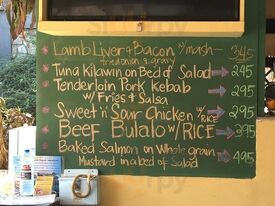 Lamb Liver & Bacon w/ mash - 345
fried onion & gravy
Tuna Kilawin on Bed of Salad → 295
Tenderloin Pork Kebab → 295
w/ Fries & Salsa
Sweet 'n' Sour Chicken w/ RICE → 295
Beef Bulalo w/ RICE → 395
Baked Salmon on Whole grain → 495
Mustard in a bed of Salad